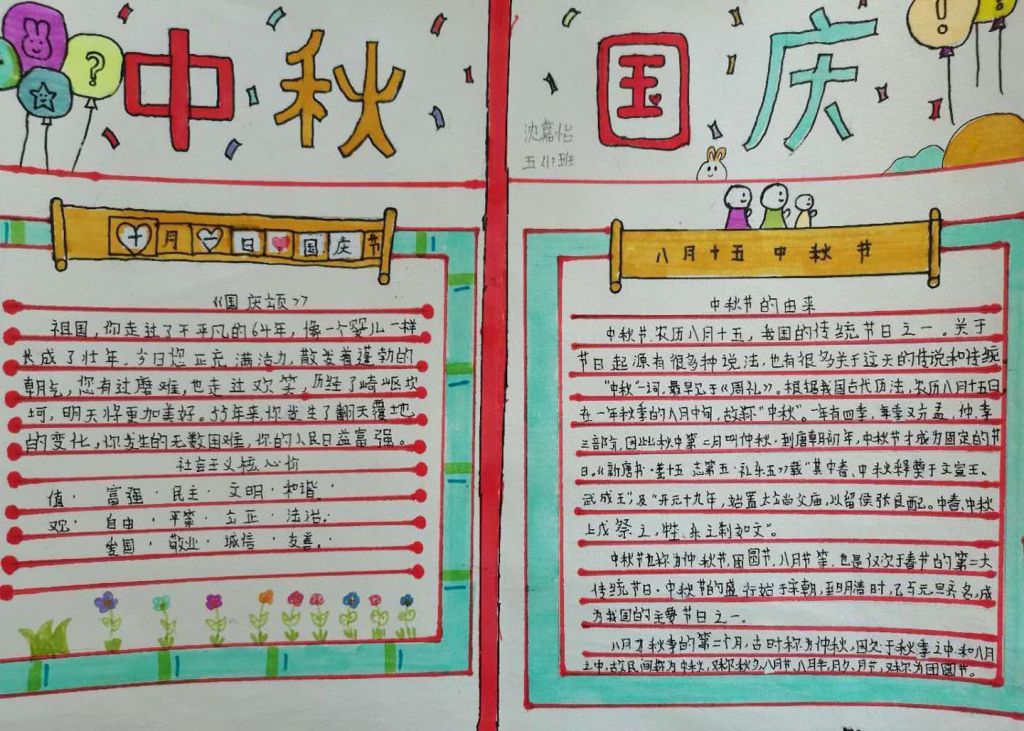 中秋
十月一日国庆节
《国庆颂》
祖国,你走过了不平凡的64年,像一个婴儿一样
长成了壮年,今日您正充满活力,散发着蓬勃的
朝气,您有过磨难,也走过欢笑,历经了崎岖坎
坷,明天将更加美好。55年来你发生了翻天覆地
的变化,你发生的无数困难,你的人民日益富强。
社会主义核心价
值· 富强·民主·文明·和谐·
观· 自由·平等·公正·法治·
爱国·敬业·诚信·友善·
国庆
沈嘉怡
八月十五中秋节
中秋节的由来
中秋节,农历八月十五,我国的传统节日之一。关于
节日起源有很多种说法,也有很多关于这天的传说和传统
"中秋"一词,最早见于《周礼》。根据我国古代历法,农历八月十五日,
在一年秋季的八月中旬,故称"中秋"。一年有四季,每季又分孟、仲、季
三部分,因此秋中第二月叫仲秋·到唐朝初年,中秋节才成为固定的节
日。《新唐书·卷十五 志第五·礼乐五》载"其中春、中秋释奠于文宣王、
武成王"及"开元十九年,始置太公尚父庙,以留侯张良配。中春、中秋
上戊祭之,牲、乐之制如文"。
中秋节也称为仲秋节,团圆节,八月节等,也是仅次于春节的第二大
传统节日·中秋节的盛行始于宋朝,至明清时,已与元旦齐名,成
为我国的主要节日之一。
八月为秋季的第二个月,古时称为仲秋,因处于秋季之中和八月
之中,故民间称为中秋,又称秋夕,八月节,八月半,月夕,月节,又称为团圆节。